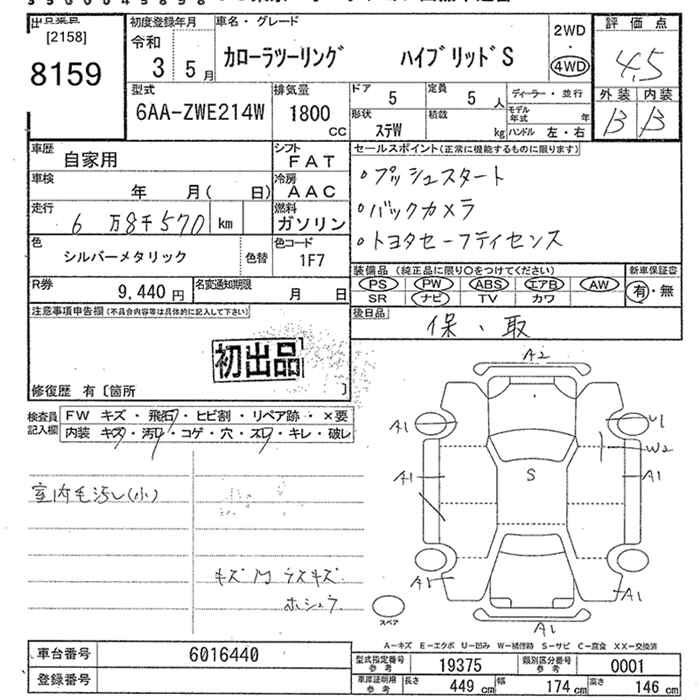 [2158]
8159
初度登録年月
令和
3 5月
車名・グレード
カローラツーリング ハイブリッドS
2WD
・
4WD
評価点
4.5
外装 内装
B B
型式
6AA-ZWE214W
排気量
1800
CC
ドア
5
定員
5人
形状
ステW
積載
kg
ディーラー・並行
モデル年式 年
ハンドル 左・右
車歴
自家用
シフト
FAT
車検
年 月( 日)
冷房
AAC
走行
6万8千570 km
燃料
ガソリン
色
シルバーメタリック
色替
色コード
1F7
R券
9,440円
名変通知期限
月 日
セールスポイント(正常に機能するものに限ります)
・プッシュスタート
・バックカメラ
・トヨタセーフティセンス
装備品 (純正品に限り○をつけてください)
PS PW ABS エアB AW
SR ナビ TV カワ
新車保証書
有・無
後日品
保、取
注意事項申告欄(不具合内容等は具体的に記入して下さい)
初出品
修復歴 有〔箇所 〕
検査員記入欄
FW キズ・飛石・ヒビ割・リペア跡・×要
内装 キズ・汚れ・コゲ・穴・スレ・キレ・破レ
室内毛汚し(小)
キズ
ラスキズ
ホシュウ
A2
A1
U1
W2
A1
S
A1
A1
A1
A1
スペア
A-キズ E-エクボ U-凹み W-補修跡 S-サビ C-腐食 XX-交換済
車台番号
6016440
登録番号
型式指定番号
参考
19375
類別区分番号
参考
0001
車庫証明用
参考
長さ 449cm 幅 174cm 高さ 146cm